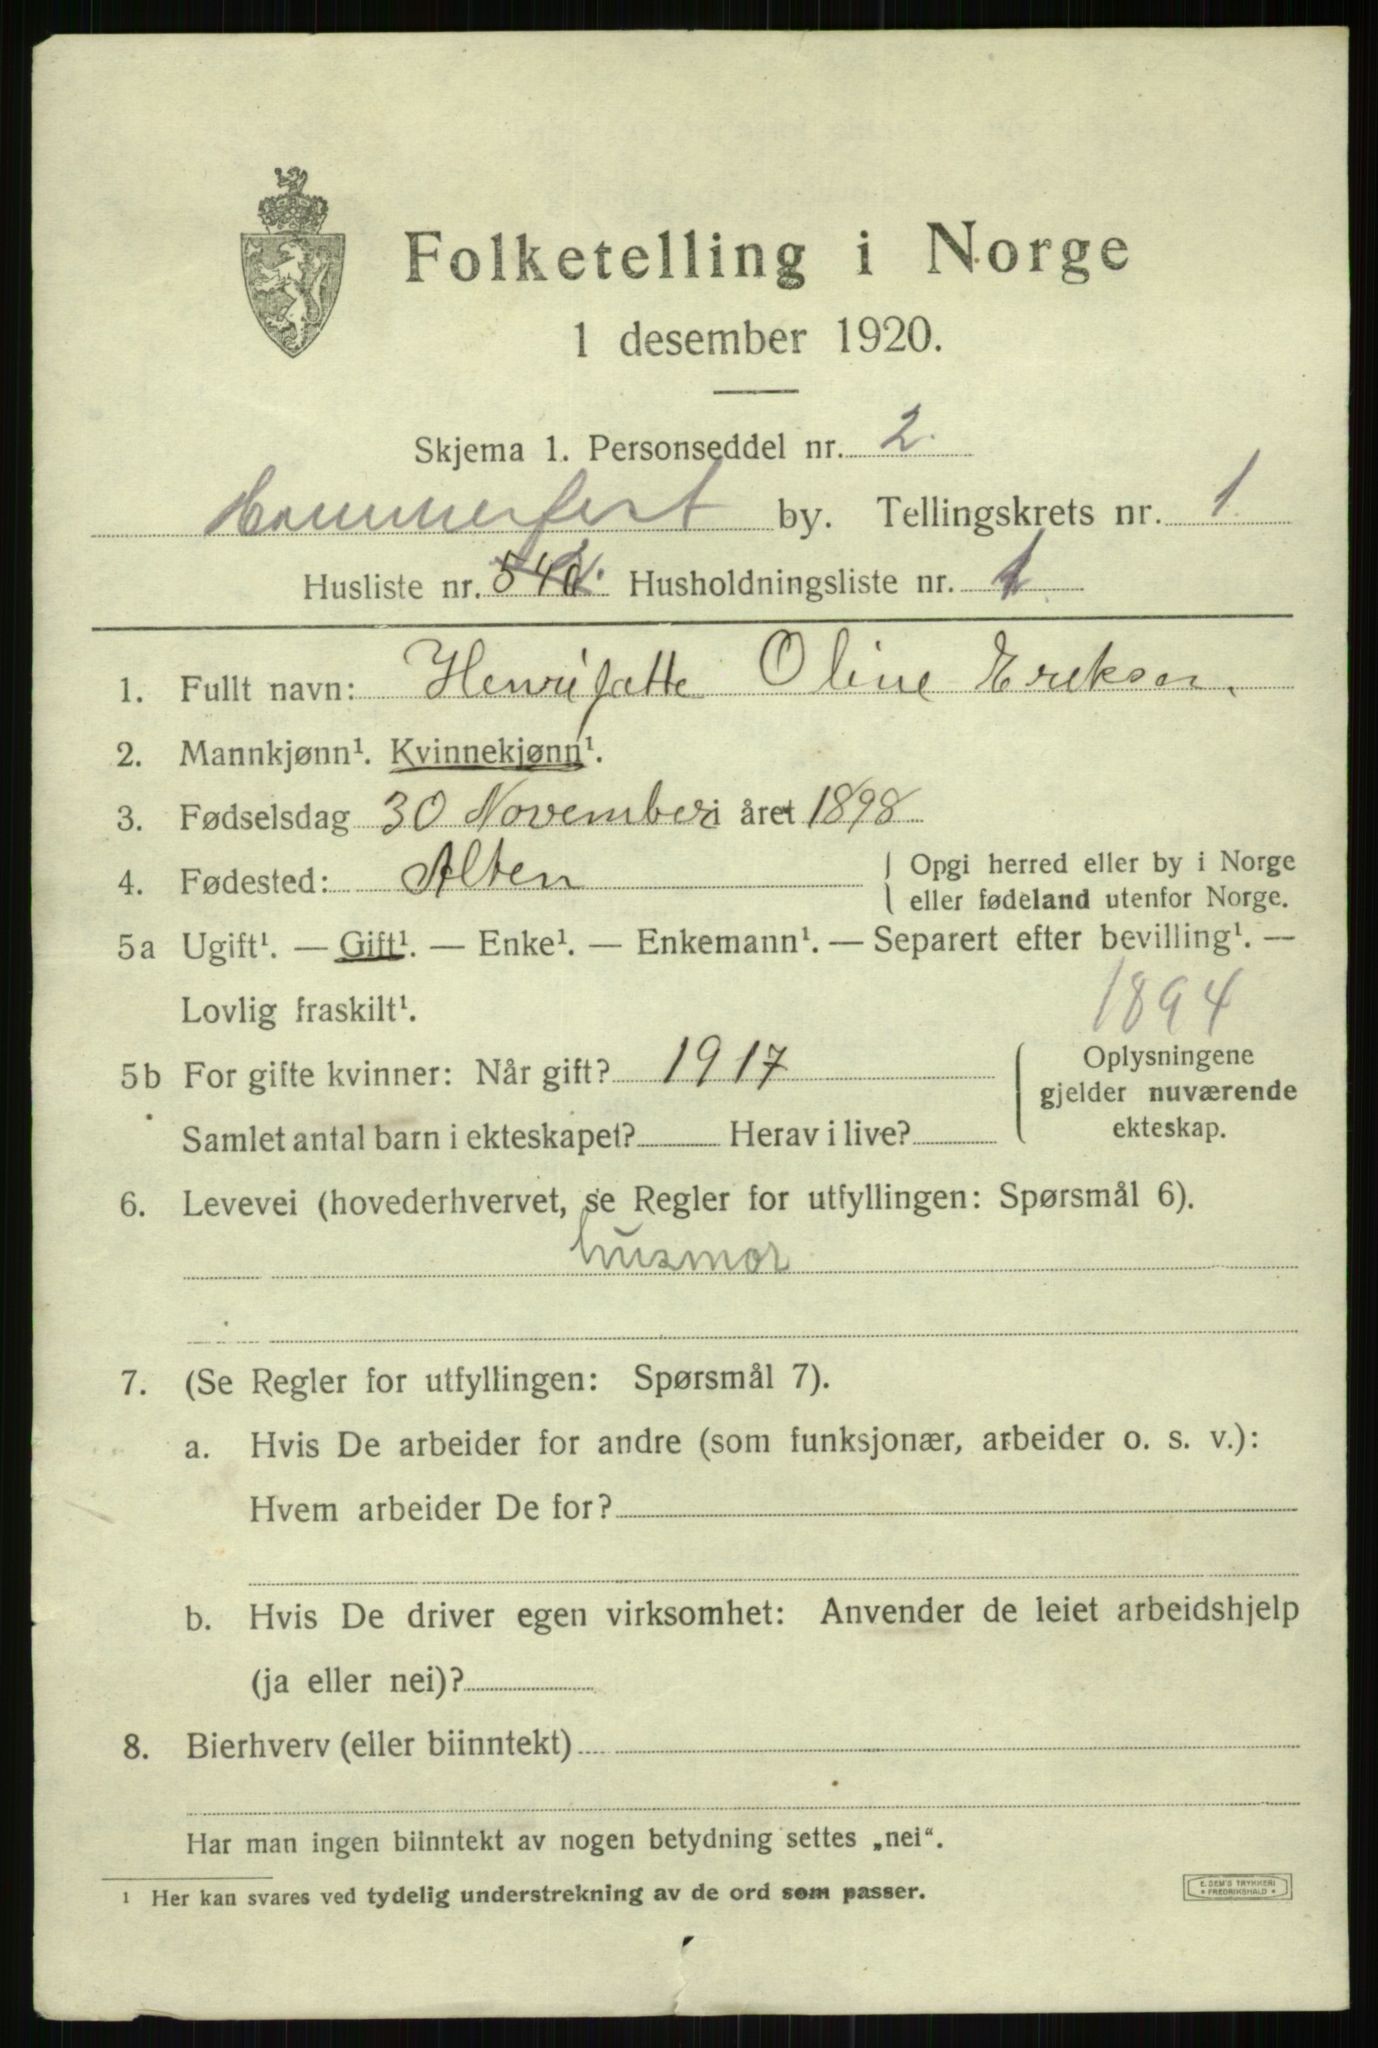 Folketelling i Norge
1 desember 1920.
Skjema 1. Personseddel nr. 2.
Hammerfest by. Tellingskrets nr. 1
Husliste nr. Husholdningsliste nr. 1
1. Fullt navn: Henrijette Oline Eriksen.
2. Mannkjønn¹. Kvinnekjønn¹.
3. Fødselsdag 30 November i året 1898
4. Fødested: Alten { Opgi herred eller by i Norge
eller fødeland utenfor Norge.
5a Ugift¹. — Gift¹. — Enke¹. — Enkemann¹. — Separert efter bevilling¹. —
Lovlig fraskilt¹. 1894
5b For gifte kvinner: Når gift? 1917
Samlet antal barn i ekteskapet? Herav i live?
Oplysningene
gjelder nuværende
ekteskap.
6. Levevei (hovederhvervet, se Regler for utfyllingen: Spørsmål 6).
husmor
7. (Se Regler for utfyllingen: Spørsmål 7).
a. Hvis De arbeider for andre (som funksjonær, arbeider o. s. v.):
Hvem arbeider De for?
b. Hvis De driver egen virksomhet: Anvender de leiet arbeidshjelp
(ja eller nei)?
8. Bierhverv (eller biinntekt)
Har man ingen biinntekt av nogen betydning settes „nei“.
¹ Her kan svares ved tydelig understrekning av de ord som passer.
E. SEM'S TRYKKERI
* FREDRIKSHALD *